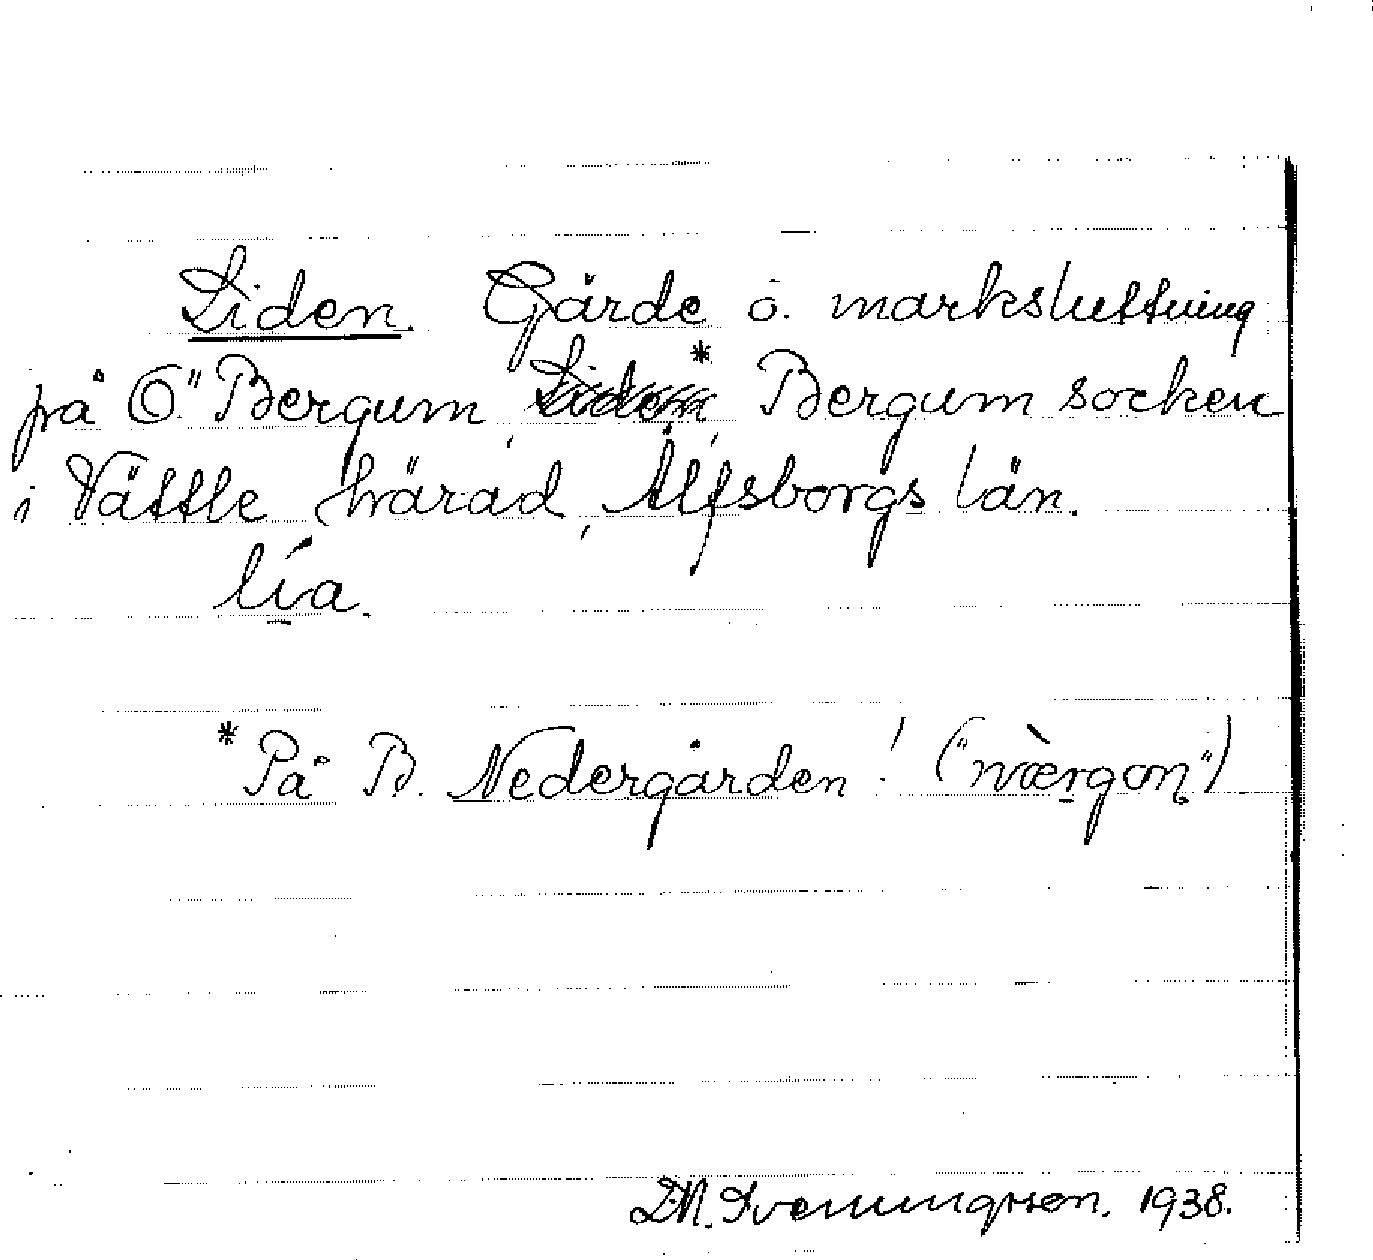 Liden. Gärde o. marksluttning
på Ö. Bergum, Liden* Bergum socken
i Vättle härad, Älfsborgs län.
lía.
* På B. Nedergården! ("næ̀rgon")
D.N. Sveningsson. 1938.